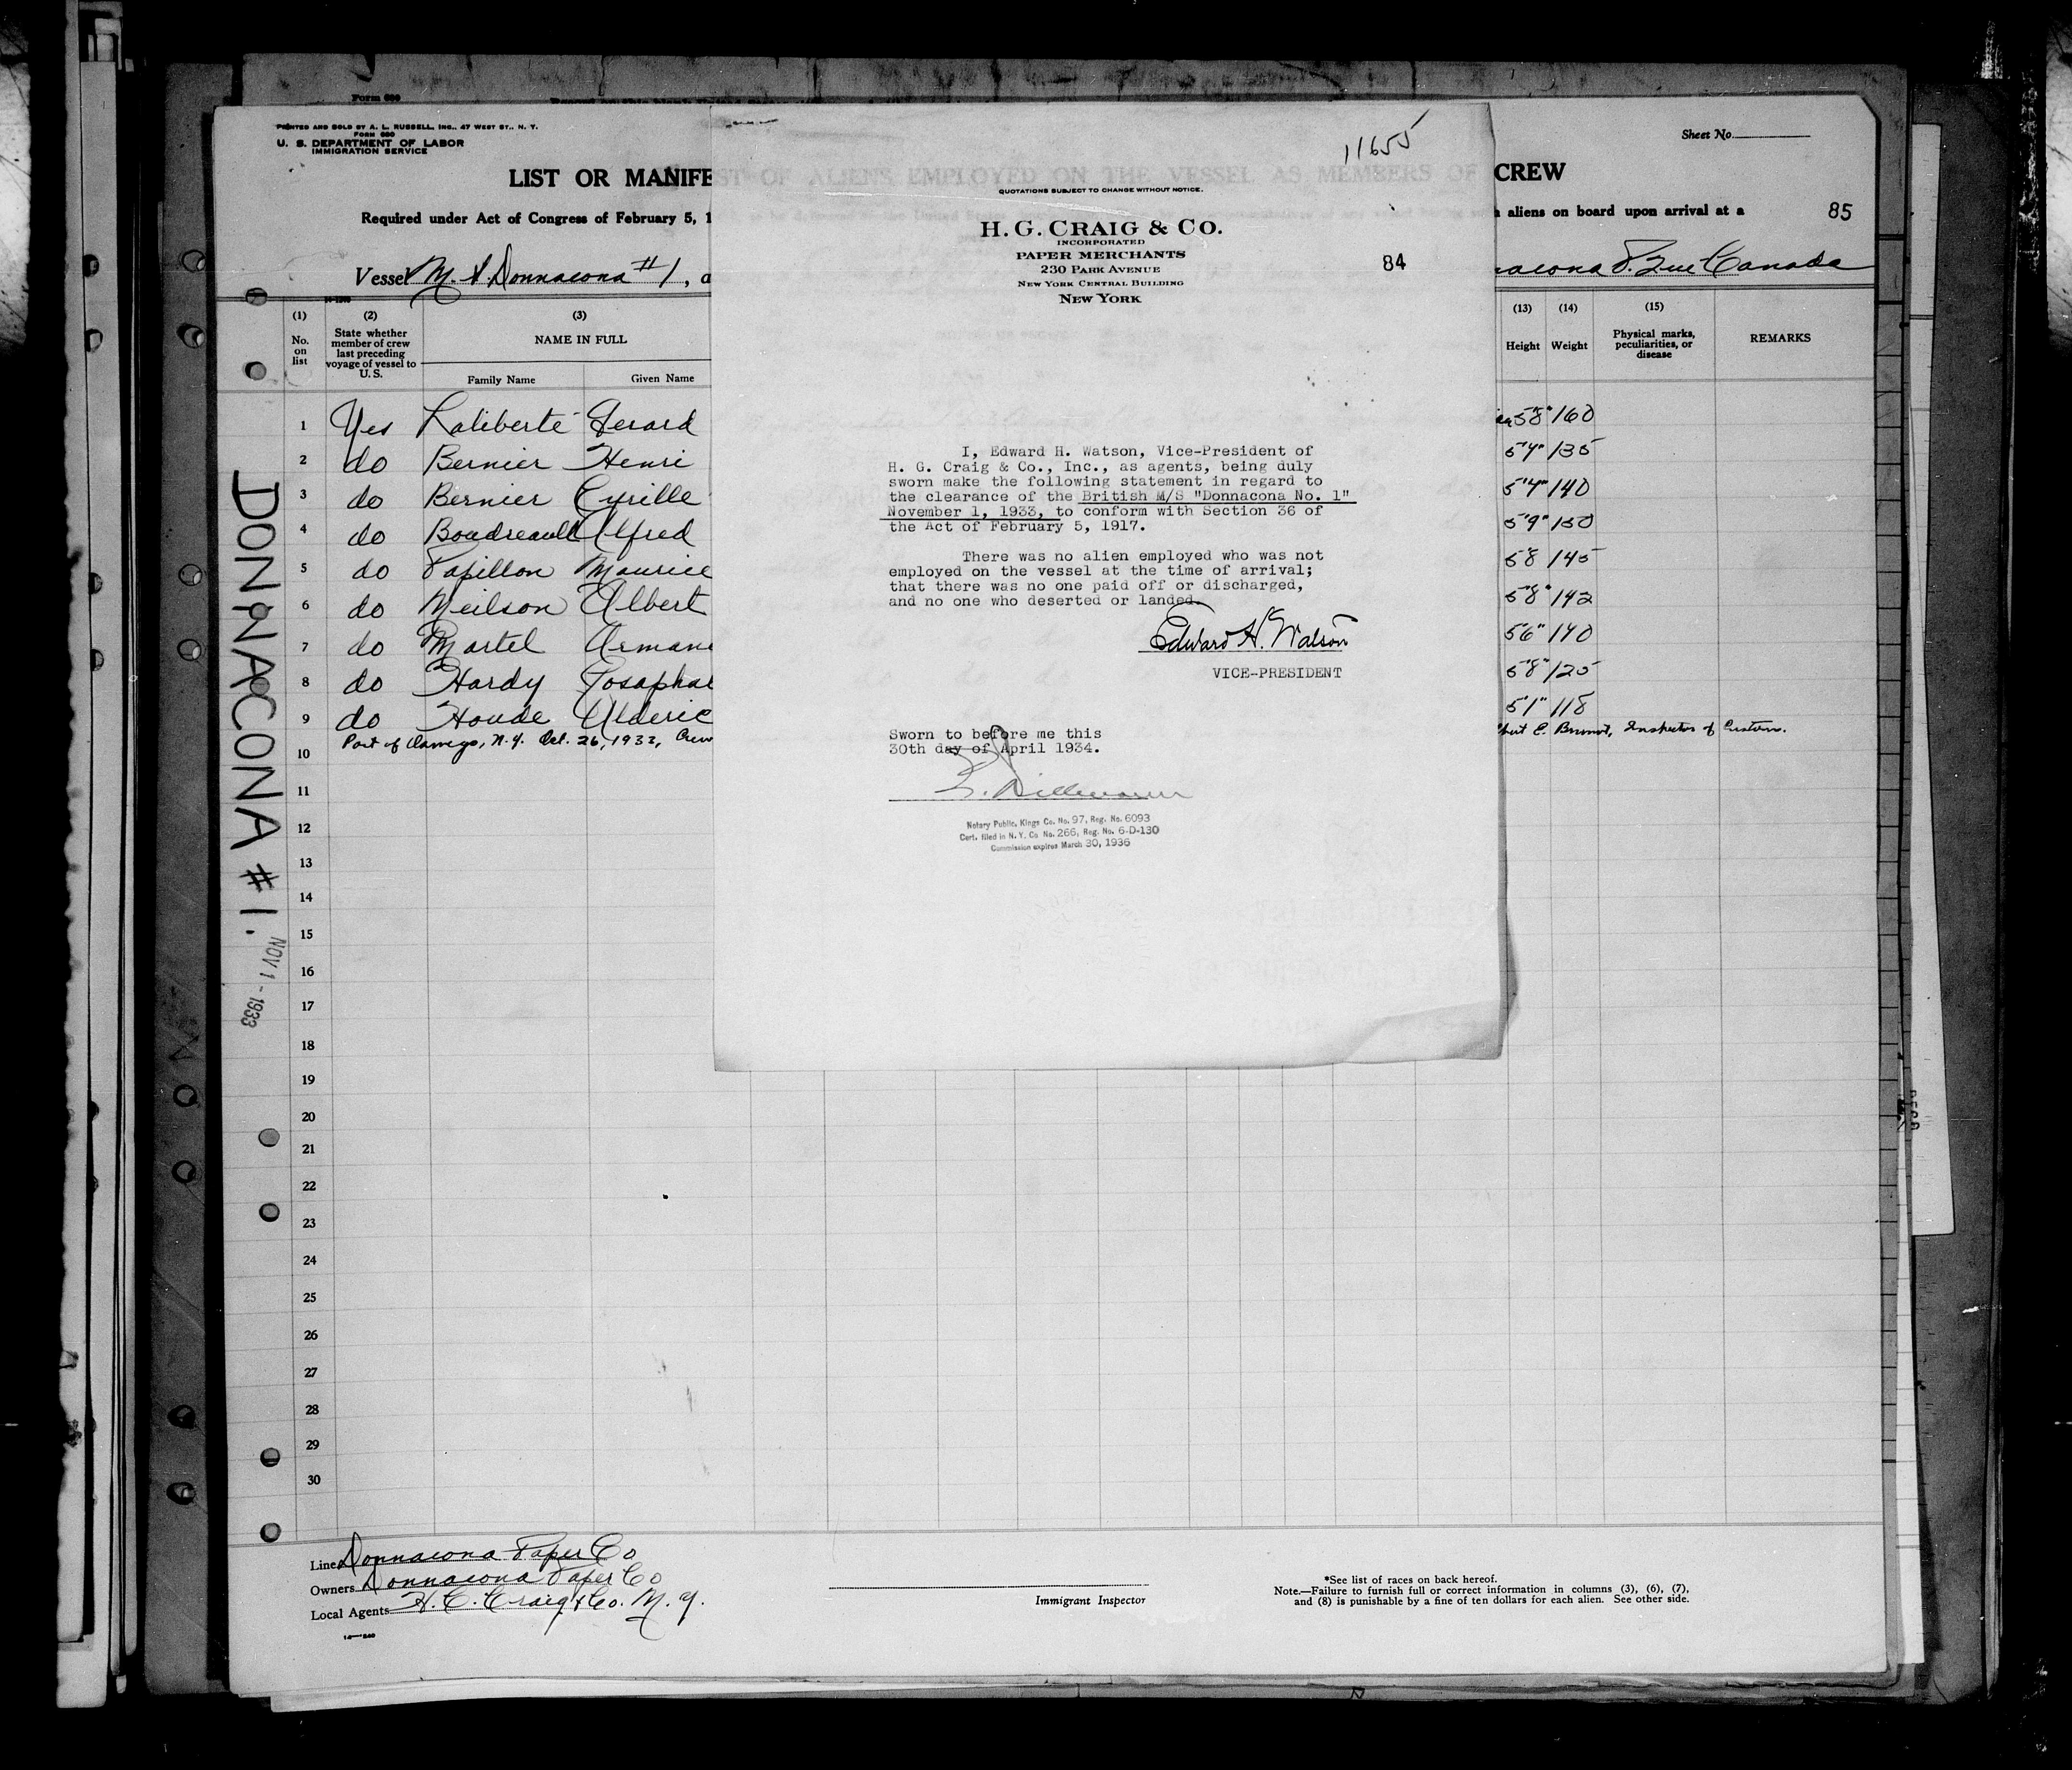 Form 680
PRINTED AND SOLD BY A. L. RUSSELL, INC., 47 WEST ST., N. Y.
FORM 680
U. S. DEPARTMENT OF LABOR
IMMIGRATION SERVICE
Sheet No.
LIST OR MANIFE
CREW
Required under Act of Congress of February 5, 1
aliens on board upon arrival at a
85
Vessel M. S. Donnacona #1, a
nacona P. Que Canada
(1) No. on list
(2) State whether member of crew last preceding voyage of vessel to U. S.
(3) NAME IN FULL
Family Name Given Name
(13) Height
(14) Weight
(15) Physical marks, peculiarities, or disease
REMARKS
1 Yes Laliberté Gerard 5'8" 160
2 do Bernier Henri 5'4" 135
3 do Bernier Cyrille 5'4" 140
4 do Boudreault Alfred 5'9" 150
5 do Papillon Maurice 5'8 145
6 do Neilson Albert 5'8" 142
7 do Martel Arman 5'6" 140
8 do Hardy Josaphat 5'8" 125
9 do Houde Ulderic 5'1" 118
Port of Oswego, N.Y. Oct. 26, 1933, Crew
Inspector of Customs.
10
11
12
13
14
15
16
17
18
19
20
21
22
23
24
25
26
27
28
29
30
DONNACONA #1.
NOV 1 - 1933
11655
QUOTATIONS SUBJECT TO CHANGE WITHOUT NOTICE.
H. G. CRAIG & CO.
INCORPORATED
PAPER MERCHANTS
230 PARK AVENUE
NEW YORK CENTRAL BUILDING
NEW YORK
84
I, Edward H. Watson, Vice-President of
H. G. Craig & Co., Inc., as agents, being duly
sworn make the following statement in regard to
the clearance of the British M/S "Donnacona No. 1"
November 1, 1933, to conform with Section 36 of
the Act of February 5, 1917.
There was no alien employed who was not
employed on the vessel at the time of arrival;
that there was no one paid off or discharged,
and no one who deserted or landed.
Edward H. Watson
VICE-PRESIDENT
Sworn to before me this
30th day of April 1934.
Notary Public, Kings Co. No. 97, Reg. No. 6093
Cert. filed in N. Y. Co No. 266, Reg. No. 6-D-130
Commission expires March 30, 1936
Line Donnacona Paper Co
Owners Donnacona Paper Co
Local Agents H. C. Craig & Co. N. Y.
Immigrant Inspector
*See list of races on back hereof.
Note.—Failure to furnish full or correct information in columns (3), (6), (7),
and (8) is punishable by a fine of ten dollars for each alien. See other side.